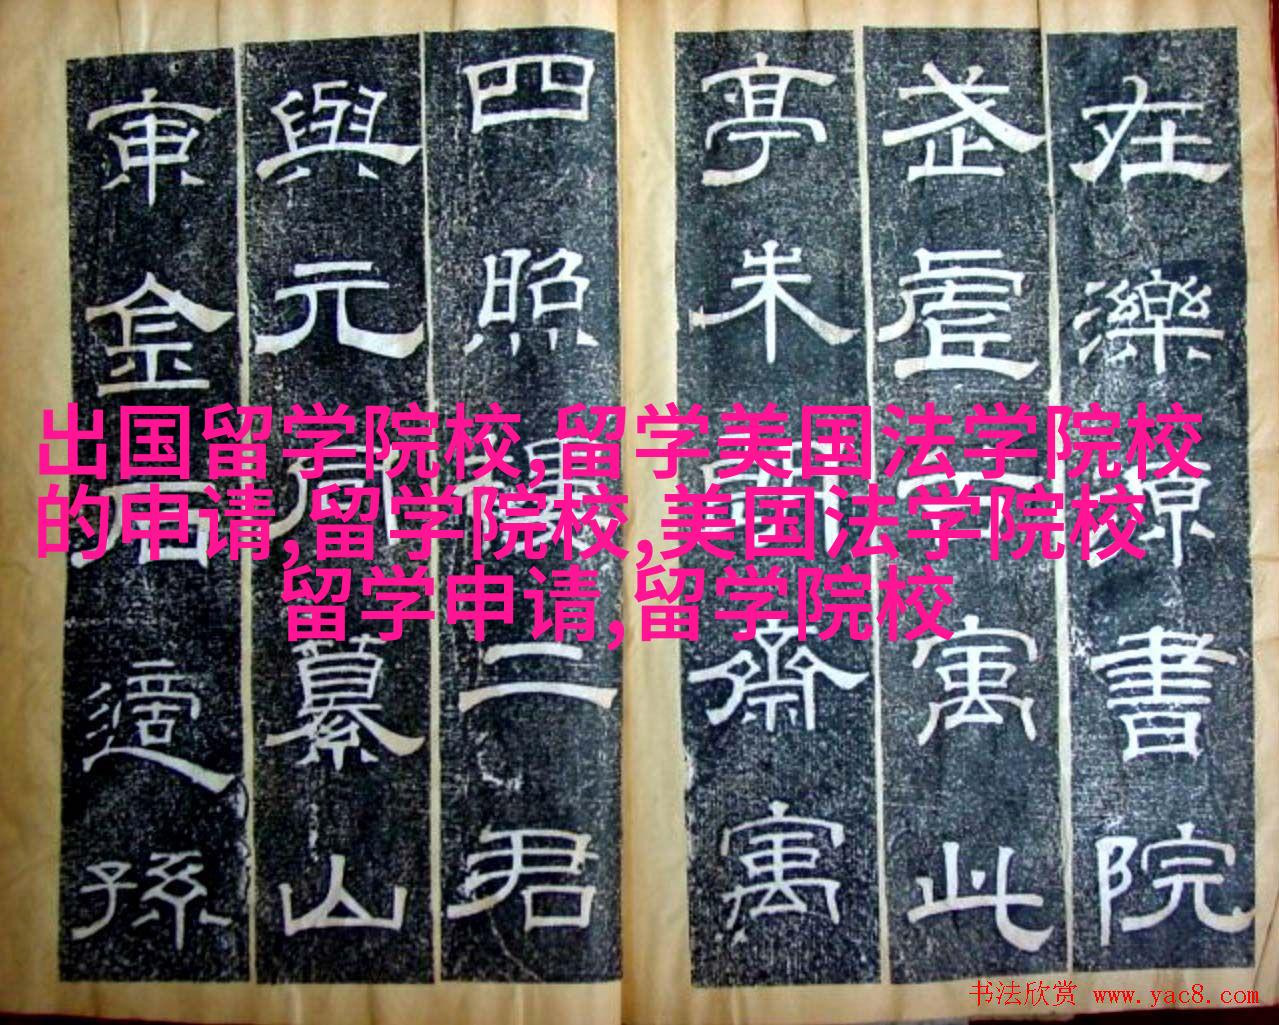 在濼源書院
武虛寓此
亭朱齋寓
四照樓二君
與元同纂山
東金石適孫
出国留学院校,留学美国法学院校
的申请,留学院校,美国法学院校
留学申请,留学院校
书法欣赏 www.yac8.com